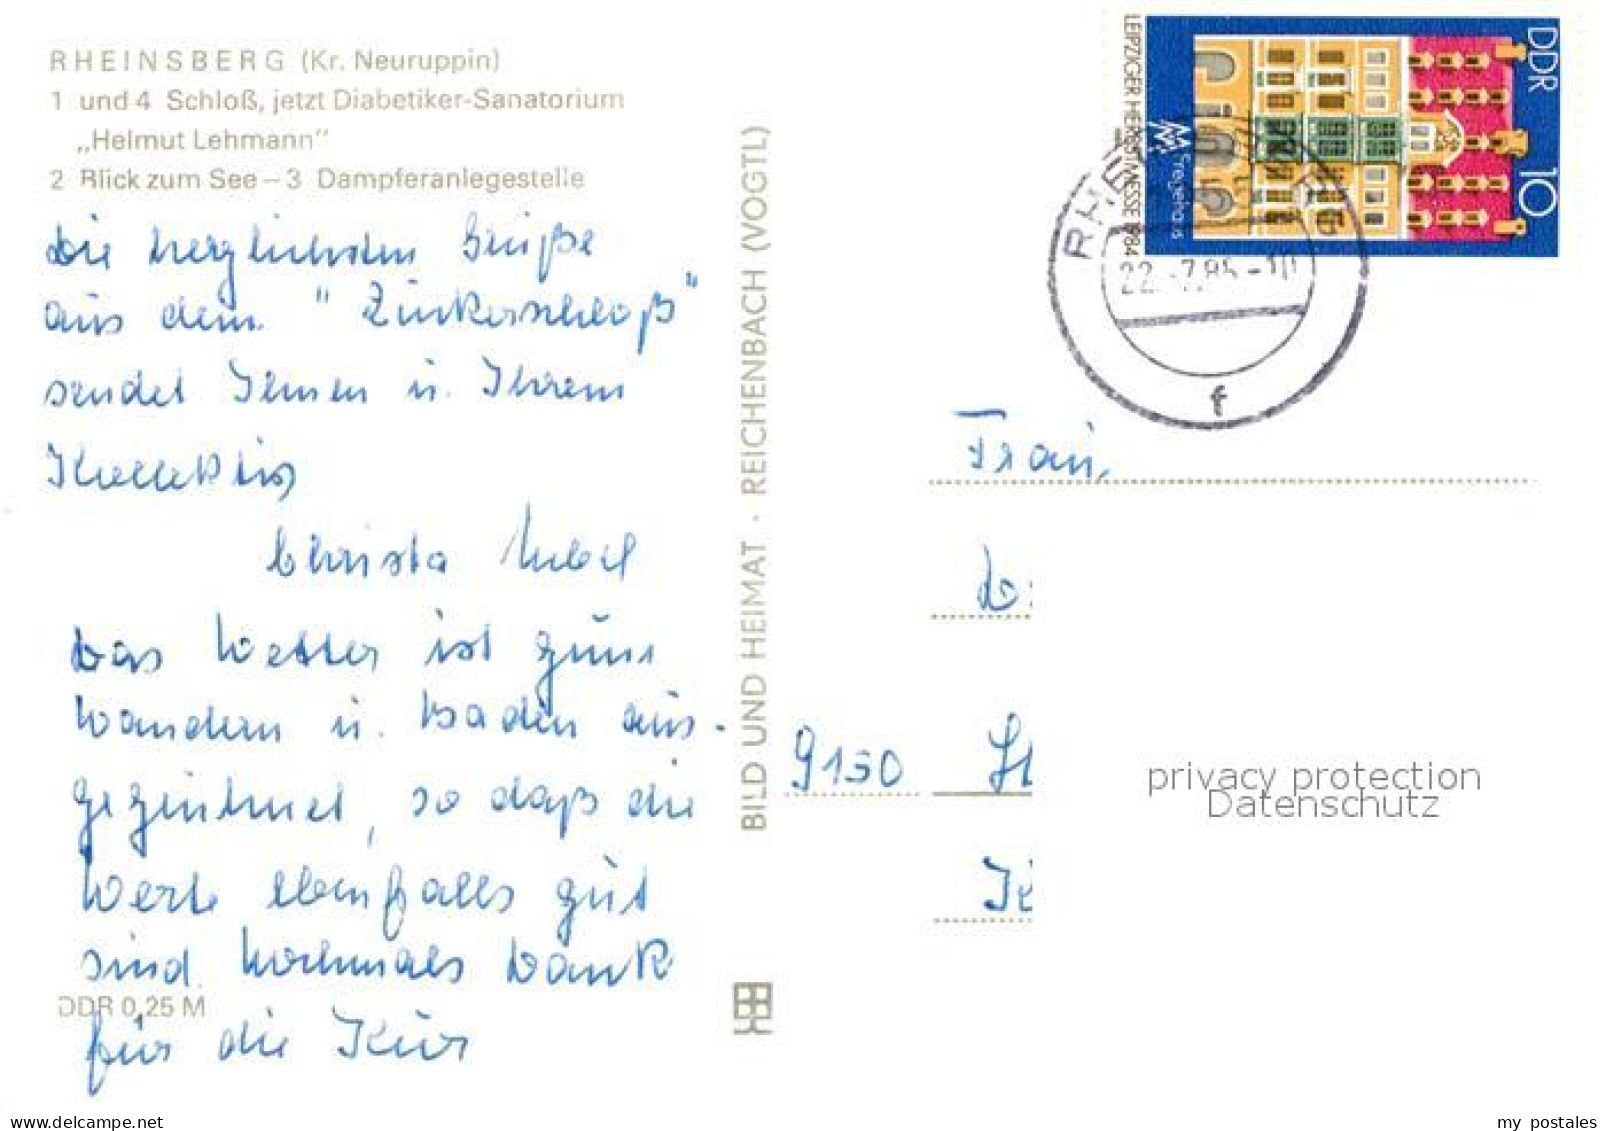 RHEINSBERG (Kr. Neuruppin)
1 und 4 Schloß, jetzt Diabetiker-Sanatorium
„Helmut Lehmann"
2 Blick zum See – 3 Dampferanlegestelle
Die herzlichsten Grüße
aus dem "Zuckerschloß"
sendet Ihnen u. Ihrem
Kollektiv
Christa
Das Wetter ist zum
Wandern u. Baden aus-
gezeichnet, so daß die
Werte ebenfalls gut
sind. Nochmals Dank
für die Kur
DDR 0,25 M
BILD UND HEIMAT · REICHENBACH (VOGTL)
DDR
10
LEIPZIGER HERBSTMESSE 1984
Fregehaus
22.-7.85-10
f
Frau
9150
privacy protection
Datenschutz
delcampe.net
my_postales